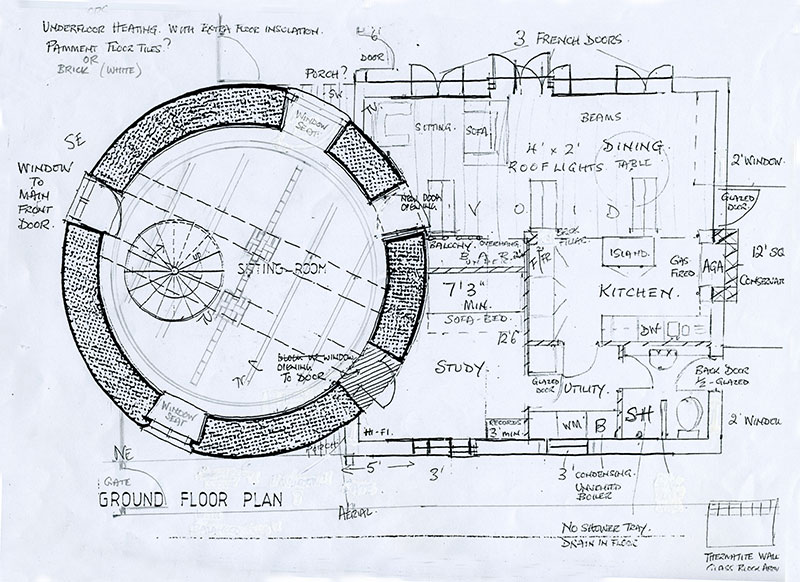 UNDERFLOOR HEATING. WITH EXTRA FLOOR INSULATION.
PAMMENT FLOOR TILES?
OR
BRICK (WHITE)
6'
DOOR
3 FRENCH DOORS.
PORCH?
SW
TV
SE
WINDOW
TO
MAIN
FRONT
DOOR.
WINDOW
SEAT
SITTING.
SOFA
BEAMS
4' x 2'
ROOFLIGHTS
DINING
TABLE
2' WINDOW.
GLAZED
DOOR
NEW DOOR
OPENING
V O I D
BALCONY
OVERHANG
BRICK
PILLAR.
F
FR
ISLAND.
GAS
FIRED
AGA
12' SQ
CONSERVAT
SITTING-ROOM
7'3"
MIN.
SOFA-BED.
12'6"
KITCHEN.
DW
WINDOW
OPENING
TO DOOR
TV
STUDY.
GLAZED
DOOR
UTILITY.
BACK DOOR
1/2 - GLAZED
WINDOW
SEAT
RECORDS
3' MIN.
WM
B
SH
2' WINDOW
HI-FI.
NE
GATE
5'
3'
3'
CONDENSING.
UNVENTED
BOILER
GROUND FLOOR PLAN
AERIAL.
NO SHOWER TRAY.
DRAIN IN FLOOR
THERMALITE WALL
GLASS BLOCK